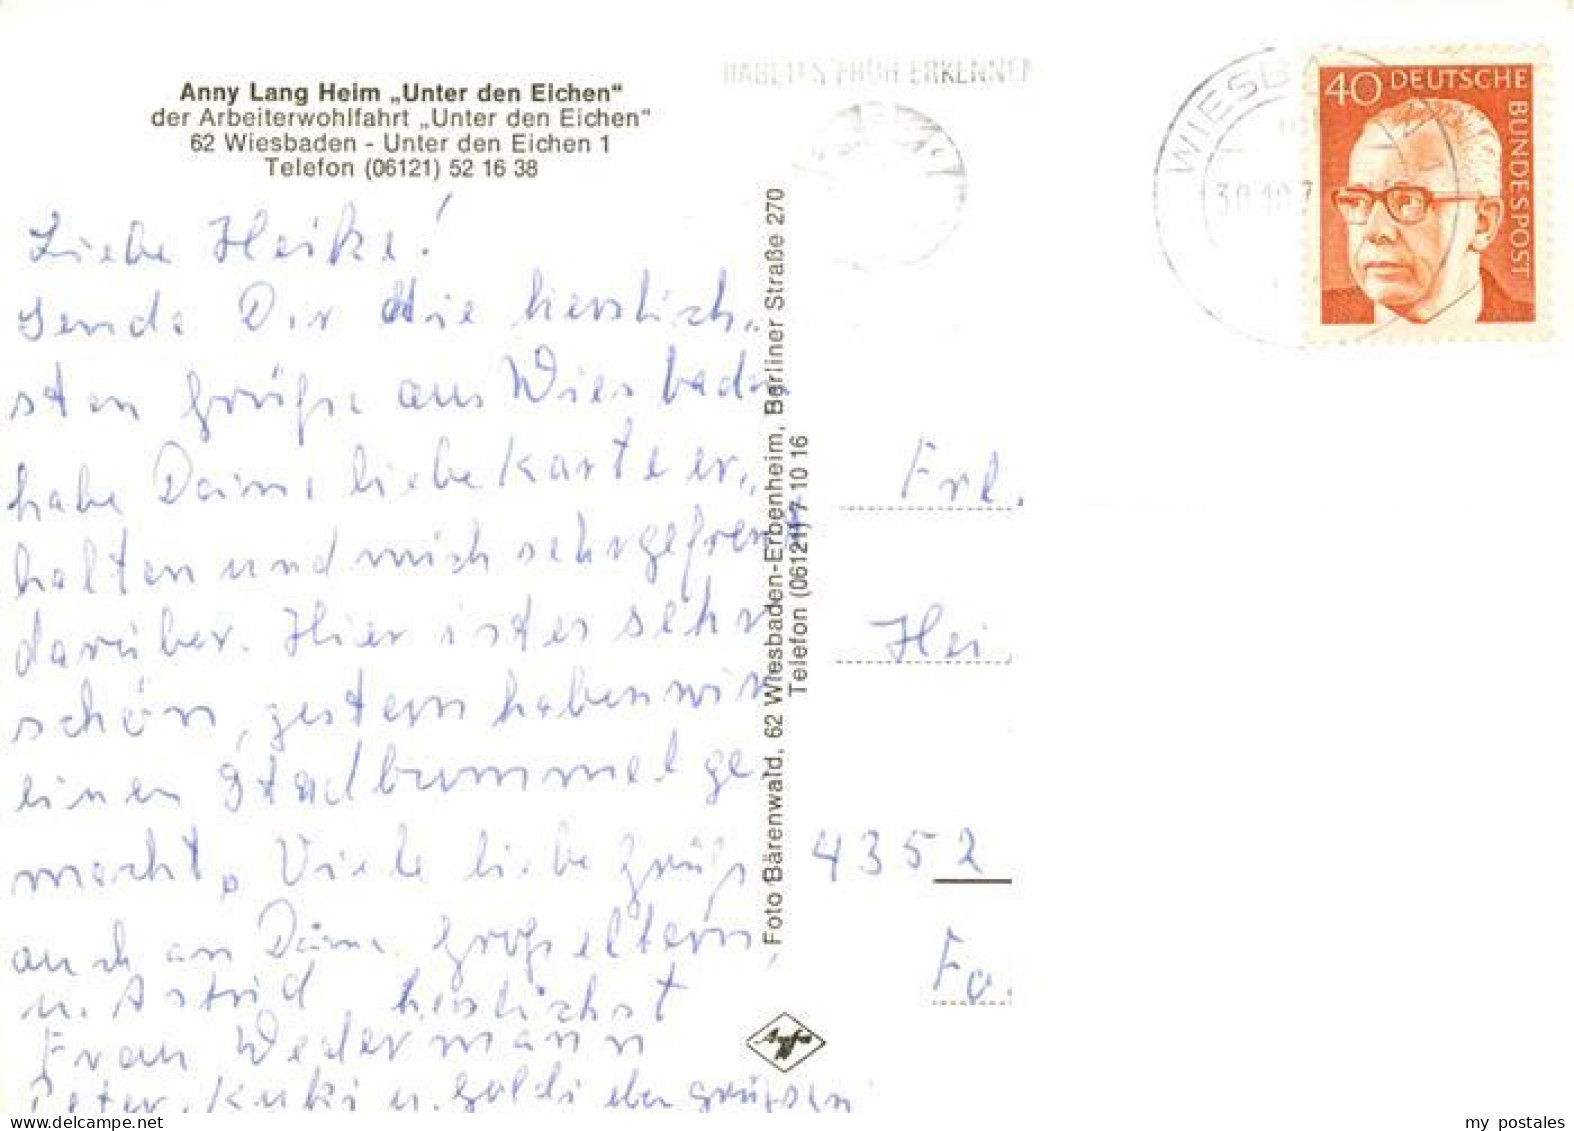 Anny Lang Heim „Unter den Eichen“
der Arbeiterwohlfahrt „Unter den Eichen“
62 Wiesbaden - Unter den Eichen 1
Telefon (06121) 52 16 38
Liebe Heike!
sende Dir die herzlich-
sten Grüße aus Wiesbaden
habe Deine liebe Karte er-
halten und mich sehr gefreut
darüber. Hier ist es sehr
schön, gestern haben wir
einen Stadtbummel ge
macht. Viele liebe Grüße
auch an Deine Großeltern,
u. Astrid herzlichst
Frau Wedermann
Peter, Kuki u. Goldi grüßen
Foto Bärenwald, 62 Wiesbaden-Erbenheim, Berliner Straße 270
Telefon (06121) 7 10 16
Agfa
DIABETES FRÜH ERKENNEN
WIESBADEN
30.10.7
40 DEUTSCHE BUNDESPOST
Frl.
Hei
4352
Fo.
my postales